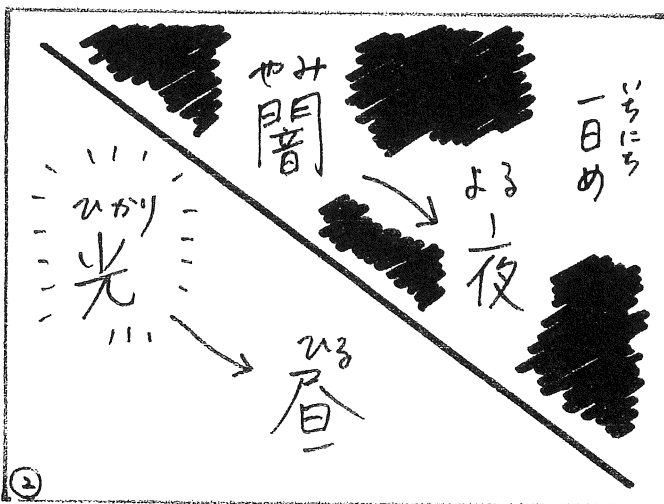 いちにち
一日め
やみ
闇
よる
夜
ひかり
光
ひる
昼
②